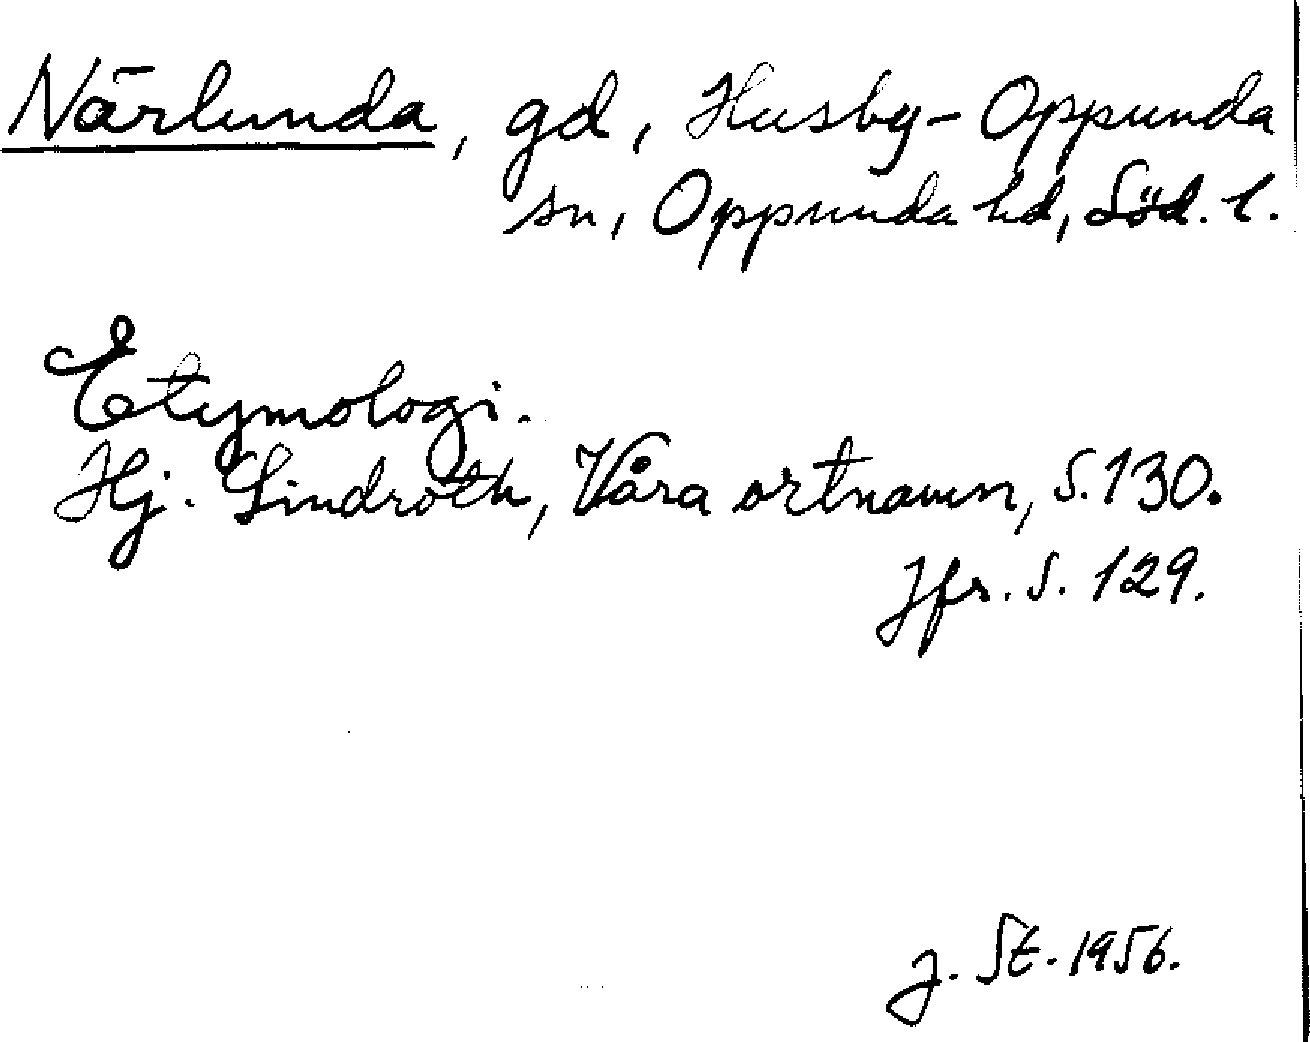 Närlunda, gd, Husby-Oppunda
sn, Oppunda hd, Söd. l.
Etymologi.
Hj. Lindroth, Våra ortnamn, S. 130.
Jfr. S. 129.
J. St. 1956.